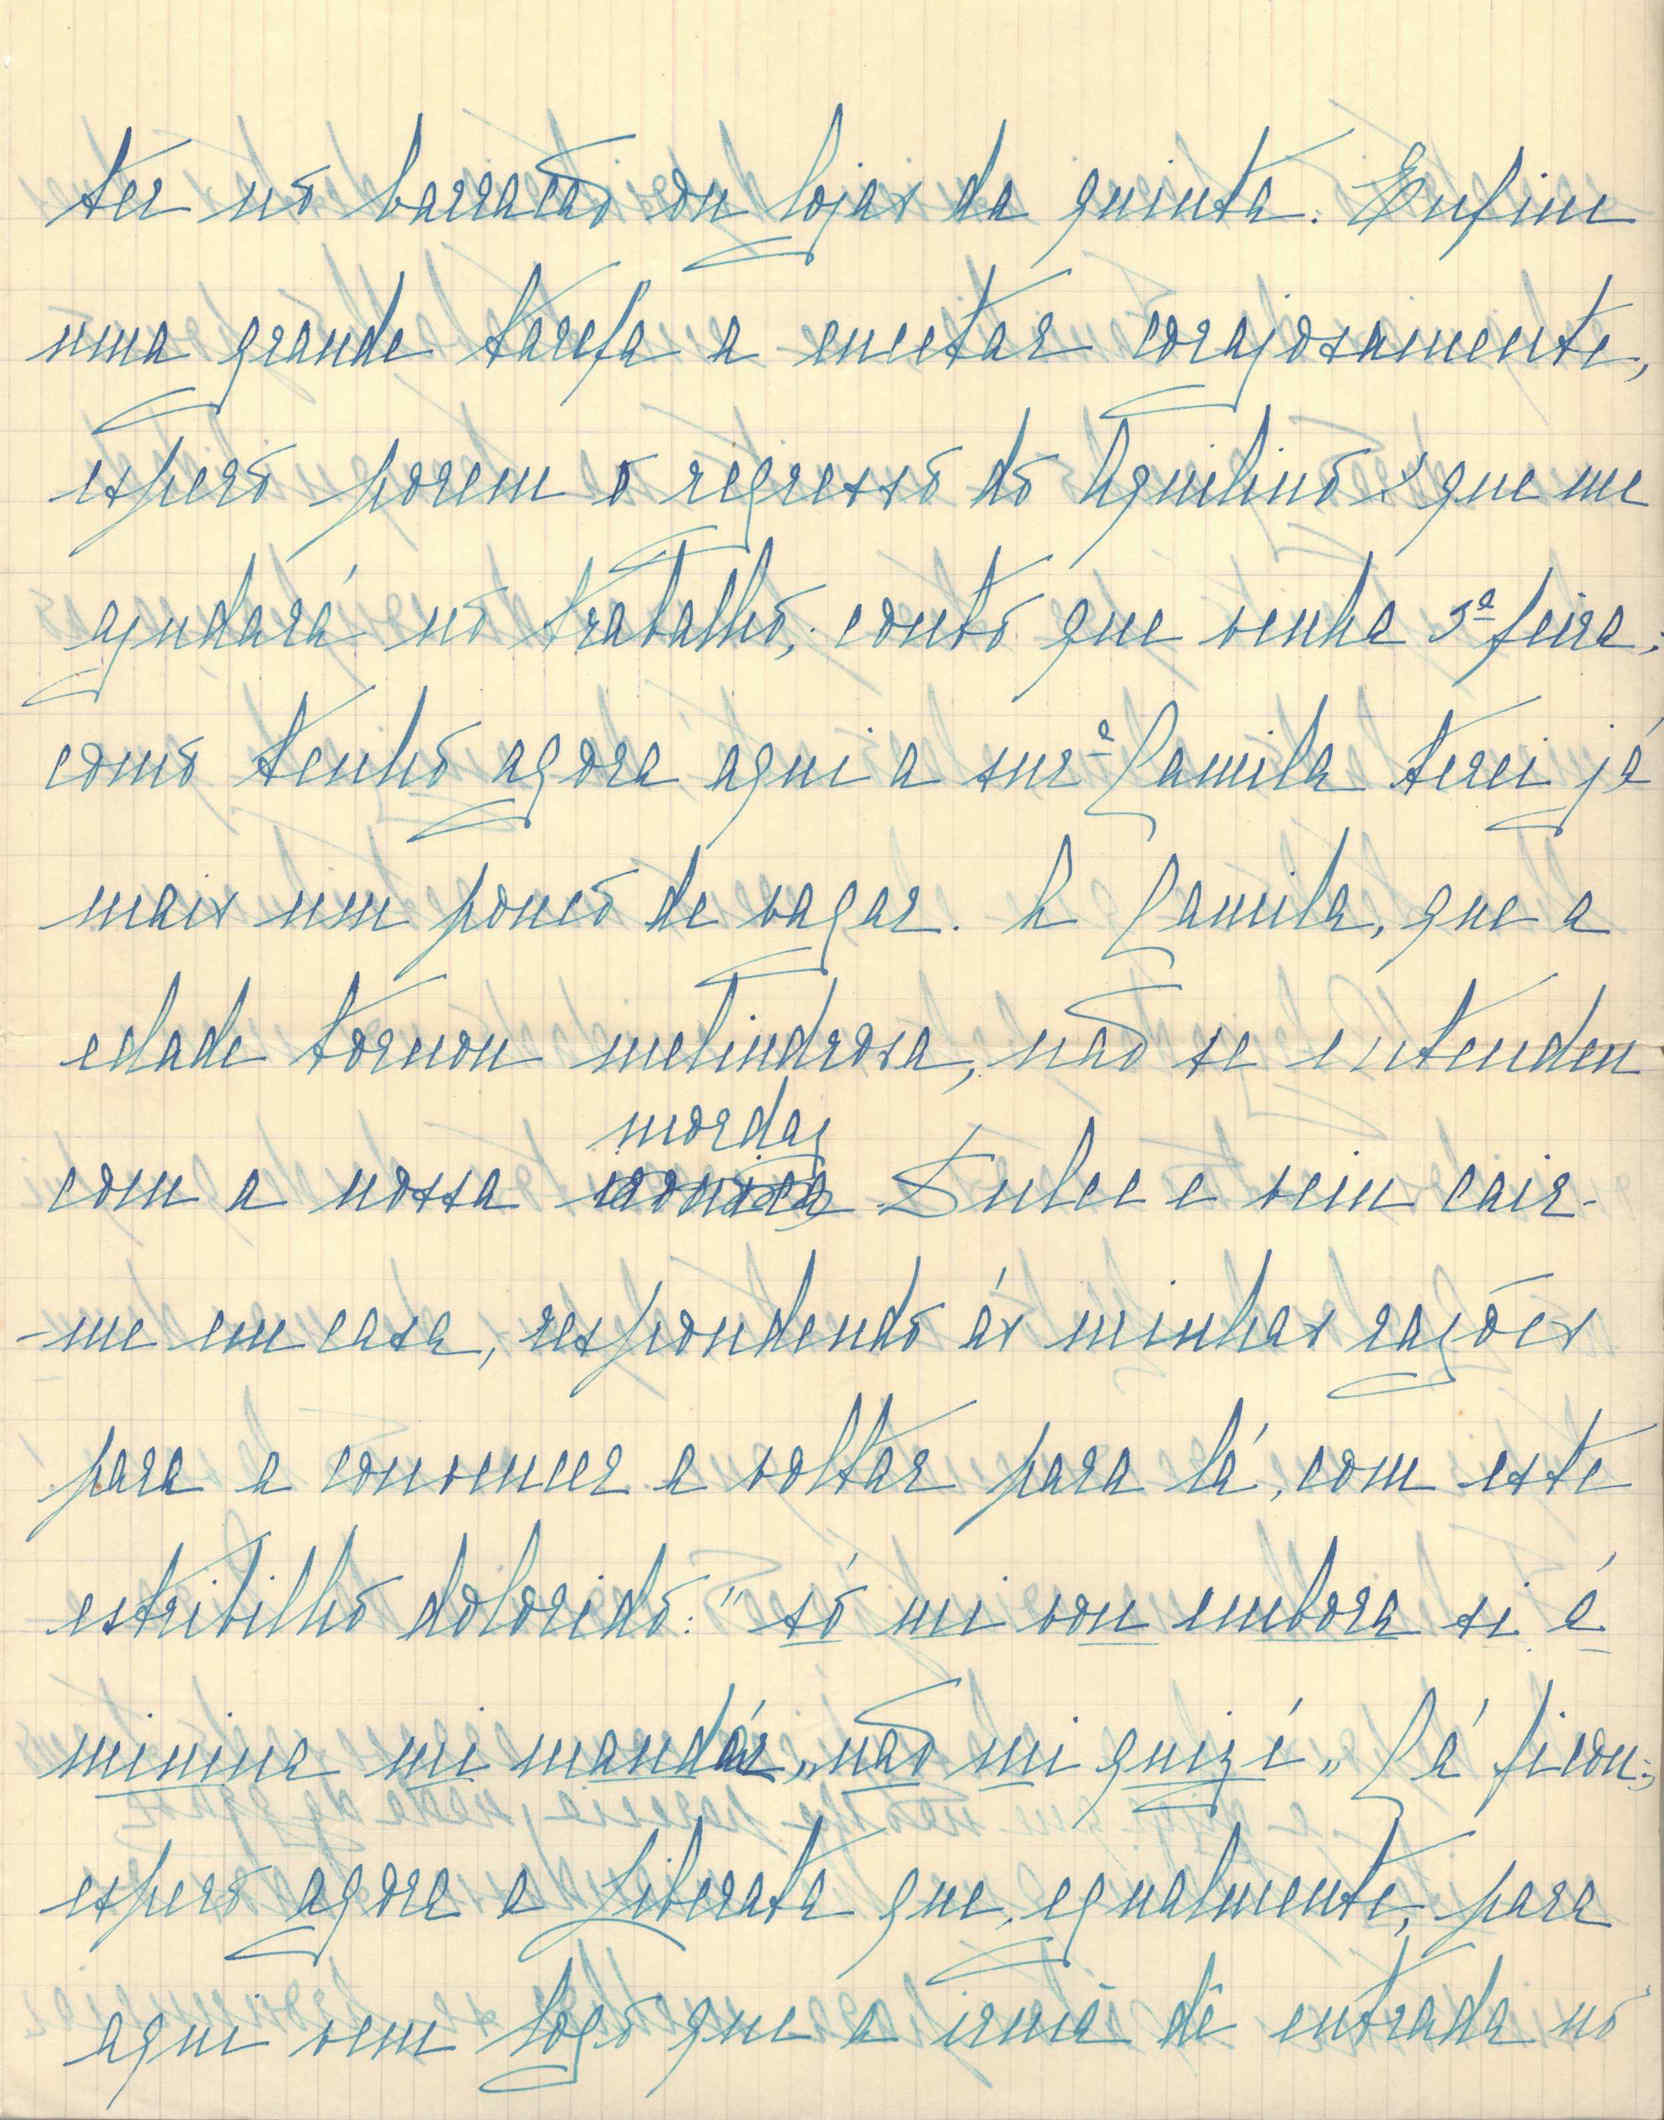 ter no barracão ou lojas da quinta. Enfim
uma grande tarefa a encetar corajosamente,
espero porem o regresso do Aquilino que me
ajudará no trabalho; conto que venha 3ª feira;
como tenho agora aqui a snrª Camila terei já
mais um pouco de vagar. A Camila, que a
edade tornou melindrosa, não se entendeu
mordaz
com a nossa Dulce e vem cair-
-me em casa, respondendo ás minhas razões
para a convencer a voltar para lá, com este
estribilho dolorido: "só mi vou embora si á
minina mi mandár, não mi quizé" Cá ficou;
espero agora a Liberata que, egualmente, para
aqui vem logo que a irmã dê entrada no